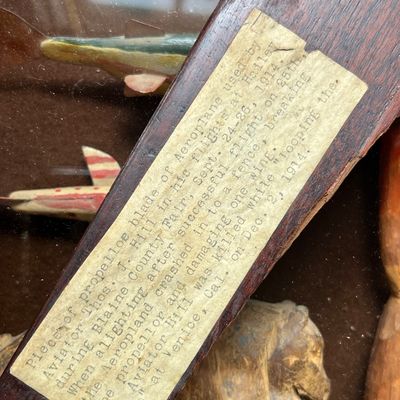 Piece of propellor blade of Aeroplane used by
Aviator Thos. J. Hill in his flights at Hail
during Blaine County Fair, Sept. 24-25, 191
When alighting after successful flight on 25th
the Aeroplane crashed in to a fence, breaking
the propellor and damaging one wing.
Aviator Hill was killed while "looping the
" at Venice, Cal. on Dec. 2, 1914.